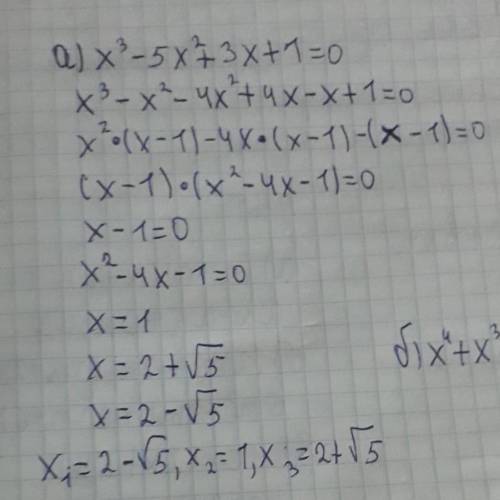 а) x³ - 5x² + 3x + 1 = 0
x³ - x² - 4x² + 4x - x + 1 = 0
x² • (x - 1) - 4x • (x - 1) - (x - 1) = 0
(x - 1) • (x² - 4x - 1) = 0
x - 1 = 0
x² - 4x - 1 = 0
x = 1
x = 2 + √5
x = 2 - √5
x₁ = 2 - √5, x₂ = 1, x₃ = 2 + √5
б) x⁴ + x³